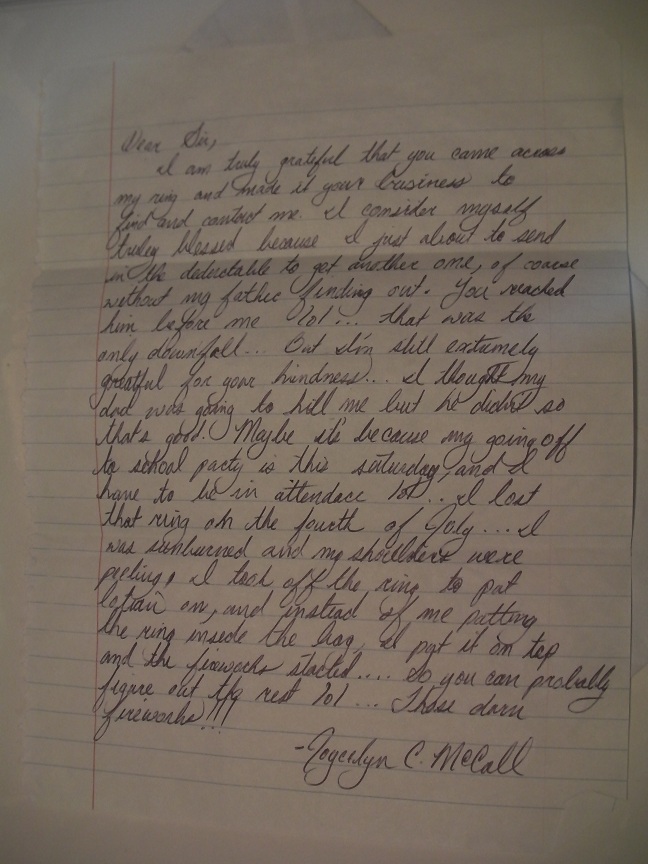 Dear Sir,
I am truly grateful that you came across
my ring and made it your business to
find and contact me. I consider myself
truley blessed because I just about to send
in the deductable to get another one, of coarse
without my father finding out. You reached
him before me lol... that was the
only downfall... But I'm still extremely
greatful for your kindness... I thought my
dad was going to kill me but he didn't so
that's good. Maybe it's because my going off
to school party is this saturday, and I
have to be in attendace lol... I lost
that ring on the fourth of July.... I
was sunburned and my shoulders were
peeling, I took off the ring to put
lotion on, and instead of me putting
the ring inside the bag, I put it on top
and the fireworks started.... So you can probably
figure out the rest lol... Those darn
fireworks!!!
-Joycelyn C. McCall